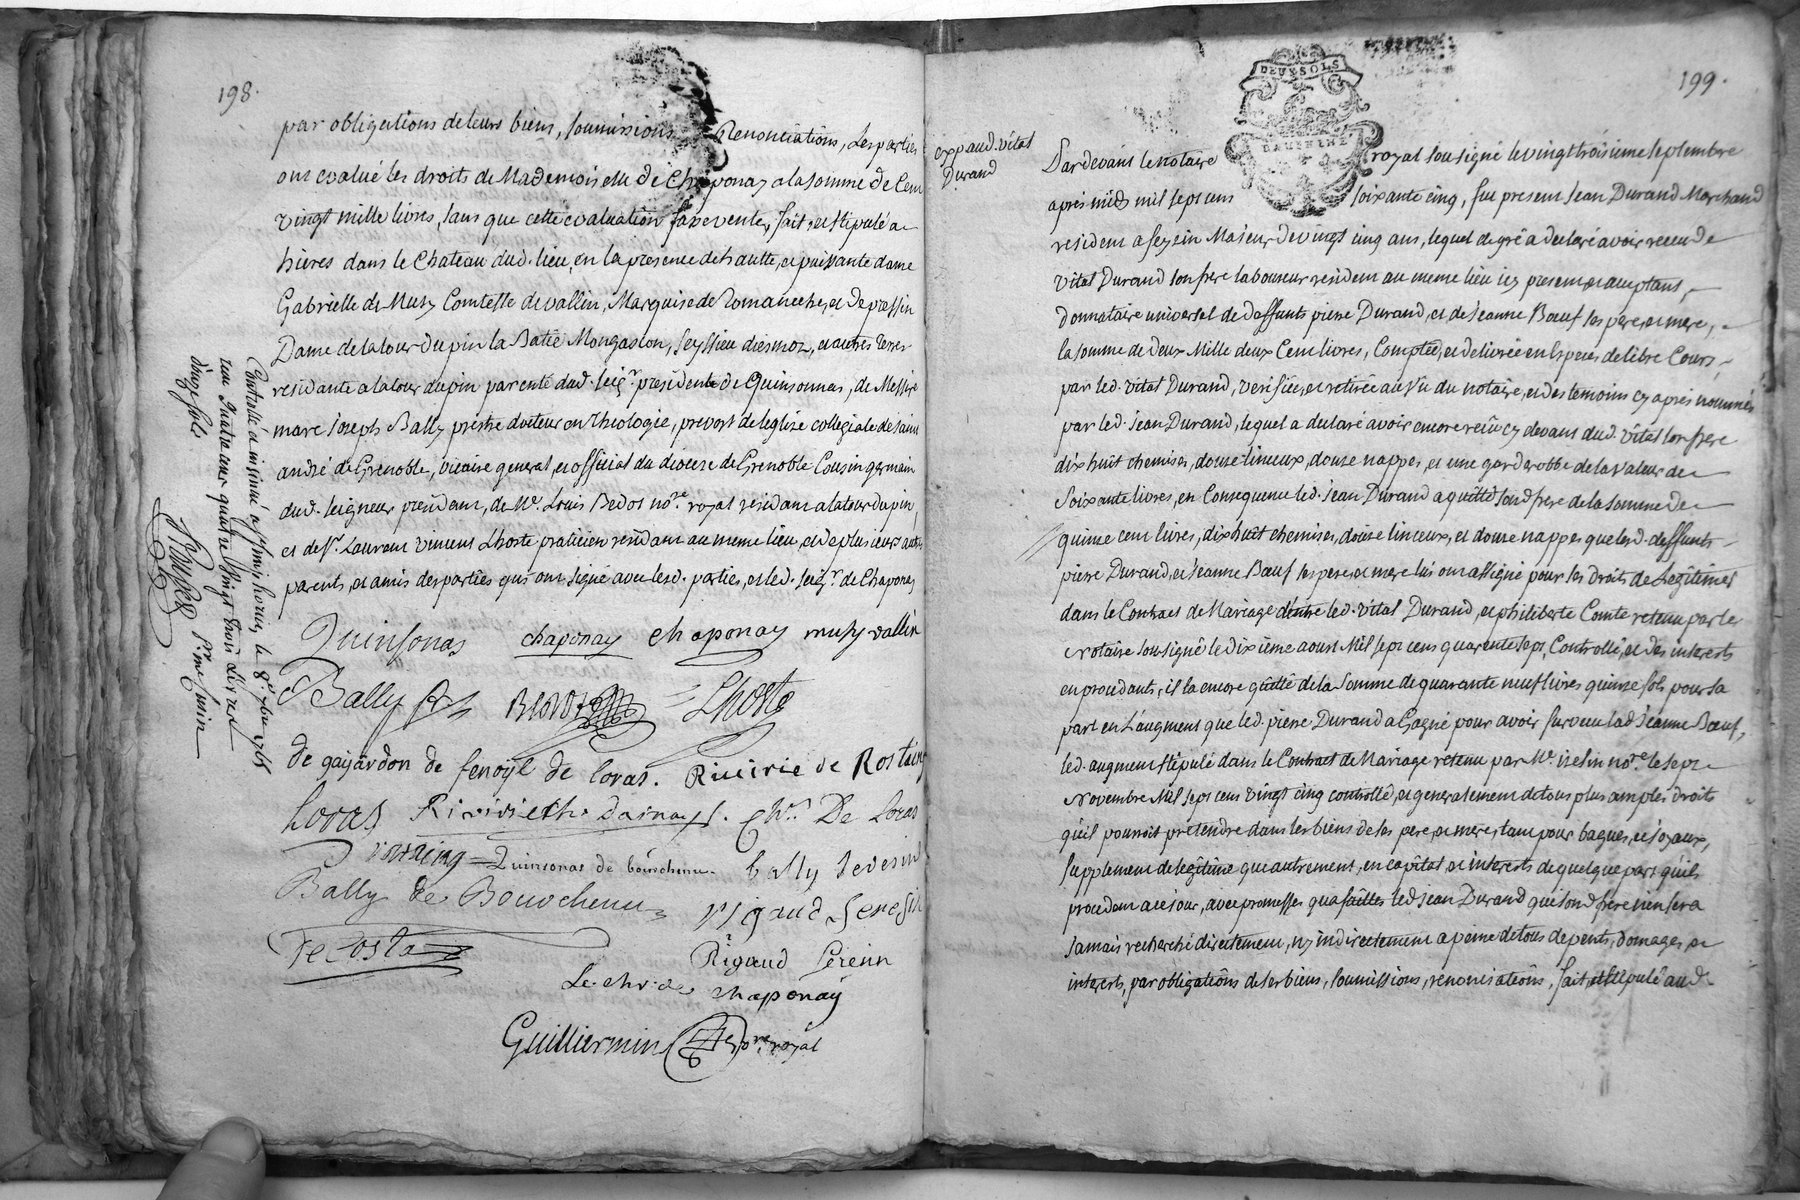 198.
par obligations de leurs biens, soumissions Renonciations, Les parties
ont evalué les droits de Mademoiselle de Chaponay a la somme de Cent
vingt mille livres, sans que cette evaluation fixe vente, fait, et stipulé a
hieres dans le Chateau dud. lieu, en la presence de hautte, et puissante dame
Gabrielle de Musy Comtesse de vallin, Marquise de Romaneche, et de pressin
Dame de la tour du pin la Batie Mongascon, Seyssieu diesmoz, et autres Terres
residante a la tour du pin parente dud. seigr. president de Quinsonnas, de Messire
marc Joseph Bally prestre docteur en Theologie, prevost de leglise collegiale de saint
andré de Grenoble, vicaire general, et official du diocese de Grenoble Cousin germain
dud. seigneur president, de Me. Louis Bedos nore. royal residant a la tour du pin,
et de Sr. Laurent vincent Lhoste praticien residant au meme lieu, et de plusieurs autres
parents, et amis des parties qui ont signé avec lesd. parties, et led. seigr. de Chaponay
Quinsonas chaponay chaponay musy vallin
Bally Bedos Lhoste
de gayardon de fenoyl de loras. Riverie de Rostaing
Loras Riverieth. chr. De Loras
rostaing Quinsonas de bouchenu. bally
Bally de Bouvchenu rigaud
De Costa Rigaud
Le chr. de chaponay
Guilliermin nore. royal
Controllé a
douze sols
199.
DEUX SOLS
DAUPHINE
exp aud. vital
Durand
Pardevant le notaire royal sousigné le vingt troisieme septembre
apres midy mil sept cent soixante cinq, fut present Jean Durand Marchand
resident a seyzin Majeur de vingt cinq ans, lequel de gré a declaré avoir receu de
vital Durand son frere laboureur resident au meme lieu icy present et acceptant,
donnataire universel de deffunts pierre Durand, et de Jeanne Bœuf ses pere, et mere,
la somme de deux Mille deux Cent livres, Comptée, et delivrée en Especes de libre Cours,
par led. vital Durand, verifiée, et retirée au vu du notaire, et des temoins cy apres nommés
par led. Jean Durand, lequel a declaré avoir encore reçu cy devant dud. vital son frere
dix huit chemises, douze linceux, douze nappes, et une garderobbe de la valeur de
soixante livres, en Consequence led. Jean Durand a quitté sond. frere de la somme de
quinze cent livres, dix huit chemises, douze linceux, et douze nappes que lesd. deffunts
pierre Durand, et Jeanne Bœuf ses pere, et mere lui ont assigné pour ses droits de Legitimes
dans le Contract de Mariage d'entre led. vital Durand, et philiberte Comte retenu par le
notaire sousigné le dixieme aoust Mil sept cent quarente sept, Controllé, et des interests
en procedants, il la encore quitté de la somme de quarante neuf livres quinze sols pour sa
part en L'augment que led. pierre Durand a Gagné pour avoir survecu lad. Jeanne Bœuf,
led. augment stipulé dans le Contract de Mariage retenu par Me. nore. le sept
novembre Mil sept cent vingt cinq controllé, et generalement de tous plus amples droits
qu'il pourroit pretendre dans les biens de ses pere, et mere, tant pour bagues, et joyaux,
supplement de legitime que autrement, en capital et interests de quelque part qu'ils
procedent a ce jour, avec promesses qua faittes led. Jean Durand que sond. frere n'en sera
Jamais recherché directement, ny indirectement a peine de tous depents, domages, et
interests, par obligations de ses biens, soumissions, renonciations, fait, et stipulé aud.